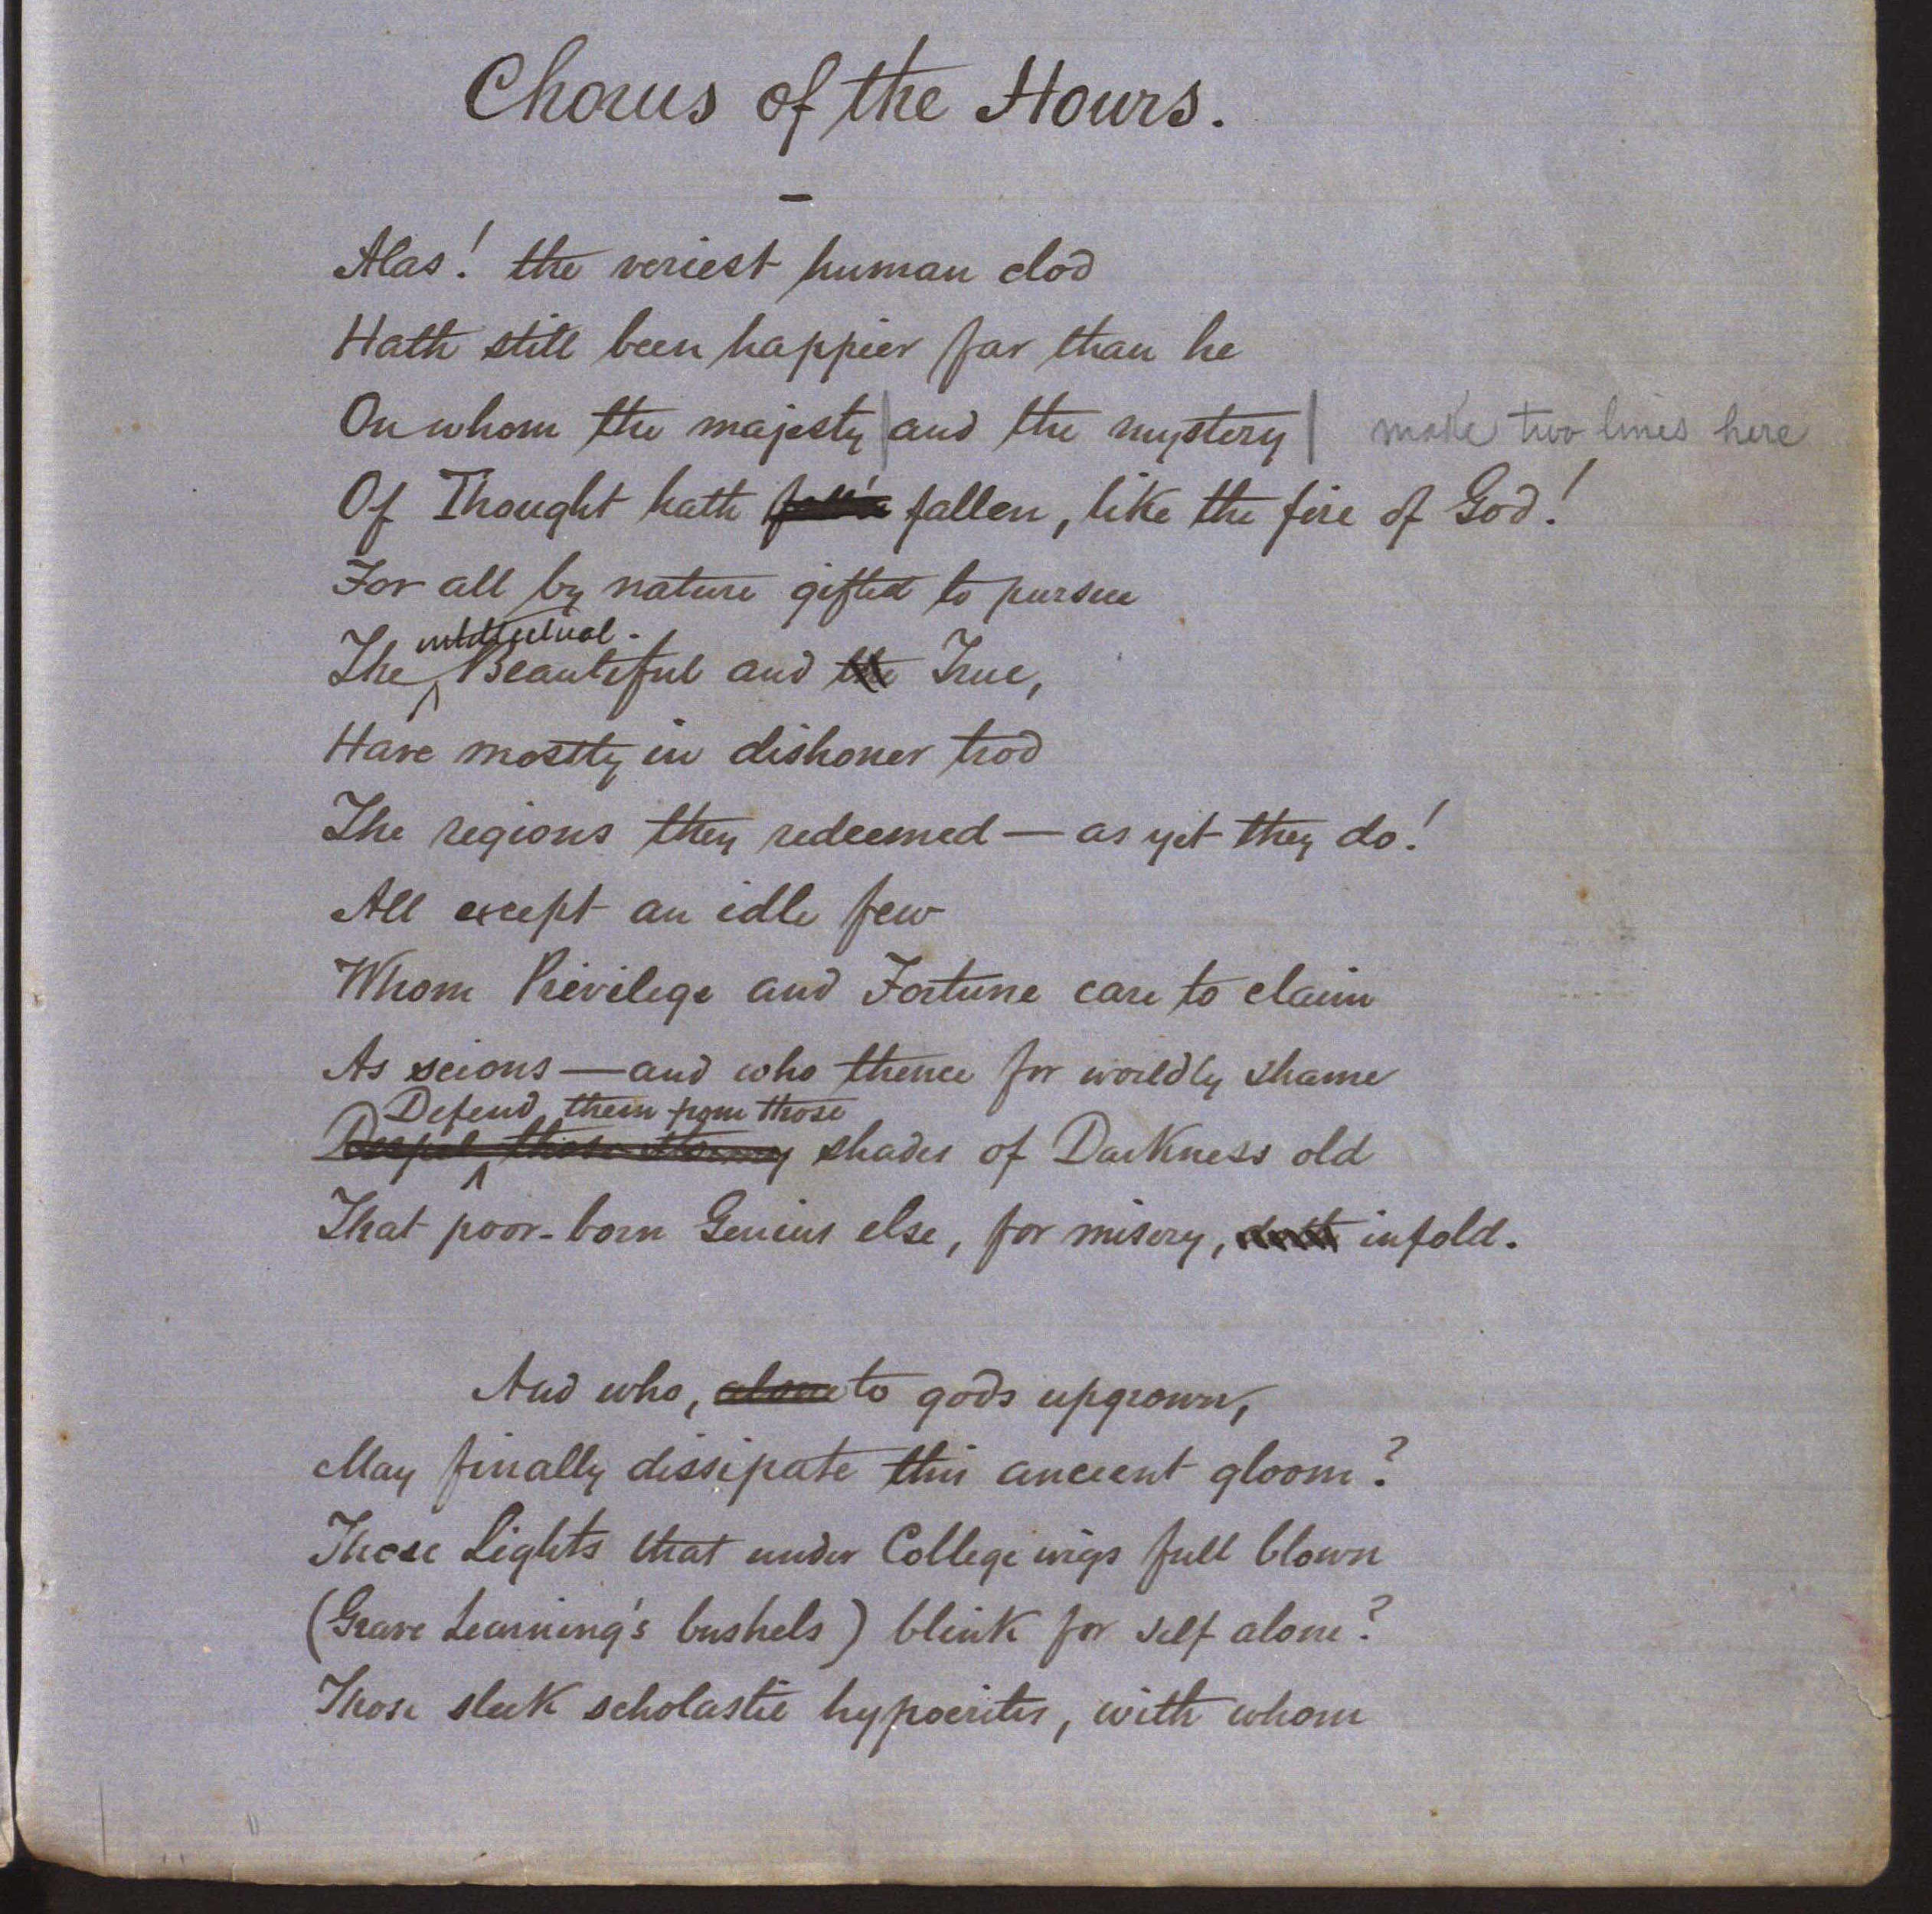 Chorus of the Hours.
Alas! the veriest human clod
Hath still been happier far than he
On whom the majesty | and the mystery | make two lines here
Of Thought hath fall'n fallen, like the fire of God!
For all by nature gifted to pursue
intellectual
The Beautiful and the True,
Have mostly in dishoner trod
The regions they redeemed — as yet they do!
All except an idle few
Whom Privilege and Fortune care to claim
As scions — and who thence for worldly shame
Defend them from those
those shades of Darkness old
That poor-born Genius else, for misery, doth infold.
And who, alone to gods upgrown,
May finally dissipate this ancient gloom?
These Lights that under College wigs full blown
(Grave Learning's bushels) blink for self alone?
Those sleek scholastic hypocrites, with whom